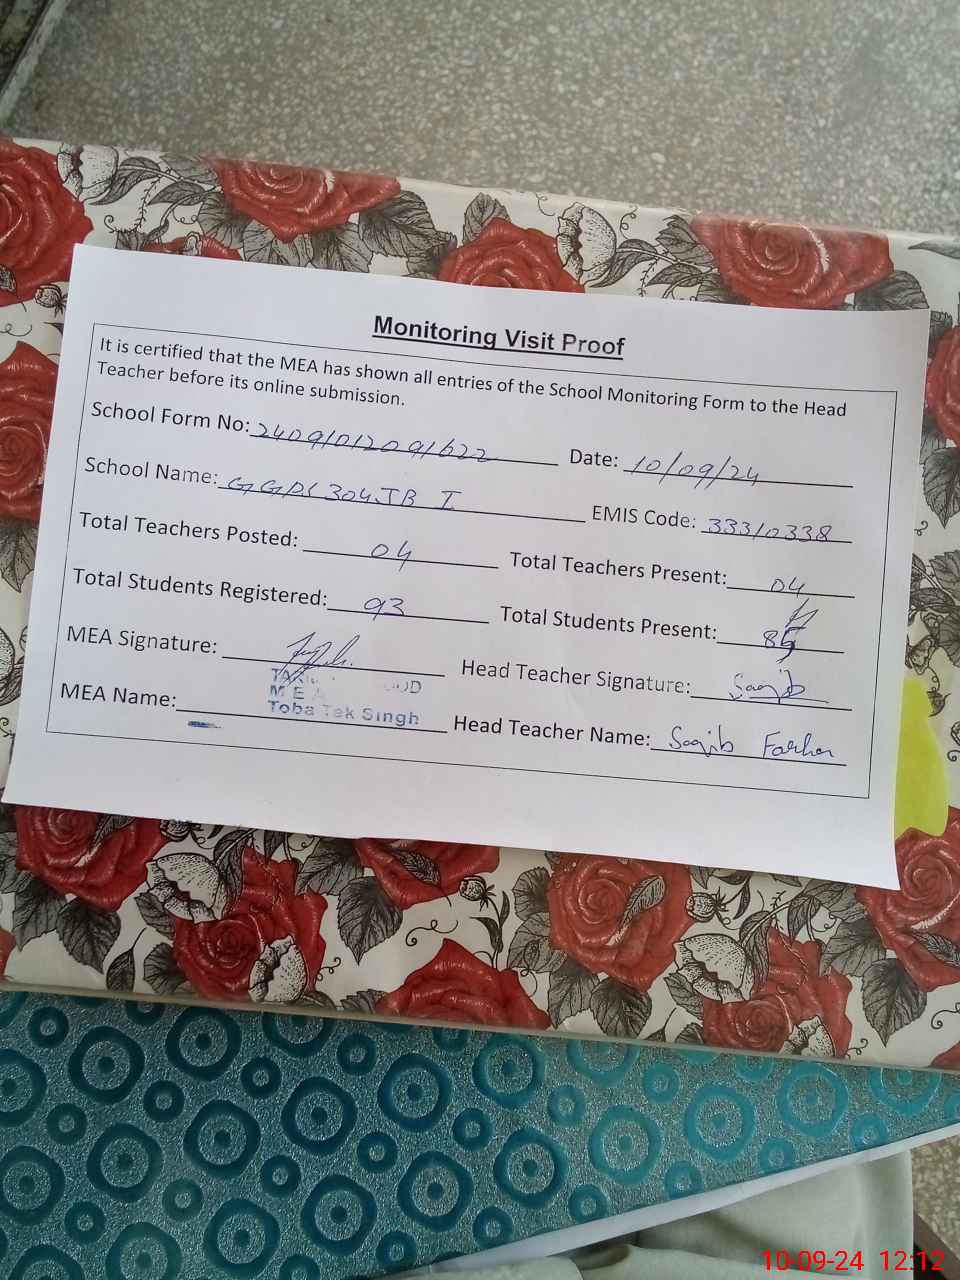 Monitoring Visit Proof
It is certified that the MEA has shown all entries of the School Monitoring Form to the Head
Teacher before its online submission.
School Form No: 24091012091622 Date: 10/09/24
School Name: GGPS 304 JB I EMIS Code: 33310338
Total Teachers Posted: 04 Total Teachers Present: 04
Total Students Registered: 93 Total Students Present:
MEA Signature: Head Teacher Signature: Saqib
MEA
Toba Tek Singh
MEA Name: Head Teacher Name: Saqib
10-09-24 12:12